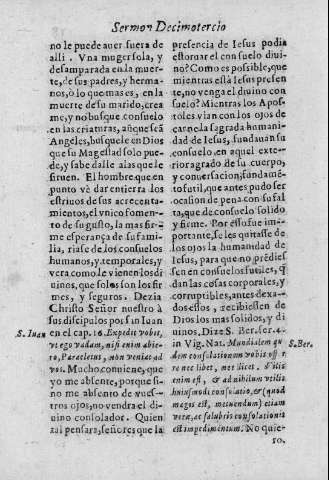 Sermon Decimotercio
no le puede auer fuera de
alli . Vna muger sola, y
desamparada en la muer-
te, de sus padres, y herma-
nos, ò lo que mas es, en la
muerte de su marido, crea
me, y no busque consuelo
en las criaturas, aũque seã
Angeles, busquele en Dios
que su Magestad solo pue-
de, y sabe dalle a las que le
siruen. El hombre que en
punto vè dar en tierra los
estriuos de sus acrecenta-
mientos, el vnico fomen-
to de su gusto, la mas fir-
me esperança de su fami-
lia, riase de los consuelos
humanos, y temporales, y
vera como le vienen los di
uinos, que solos son los fir
mes, y seguros. Dezia
Christo Señor nuestro à
sus discipulos por san Iuan
S. Iuan
en el cap. 16. Expedit vobis,
vt ego vadam, nisi enim abie-
ro, Paracletus, non veniet ad
vos. Mucho conuiene, que
yo me absente, porque si-
no me absento de vues-
tros ojos, no vendra el di-
uino consolador. Quien
tal pensara, señores que la
presencia de Iesus podia
estoruar el consuelo diui-
no? Como es possible, que
mientras està Iesus presen
te, no venga el diuino con
suelo? Mientras los Apos-
toles vian con los ojos de
carne la sagrada humani-
dad de Iesus, fundauan su
consuelo en aquel exte-
rior agrado de su cuerpo,
y conuersacion; fundamẽ-
to sutil, que antes pudo ser
ocasion de pena con su fal
ta, que de consuelo solido
y firme. Por esso fue im-
portante, se les quitasse de
los ojos la humanidad de
Iesus, para que no prẽdies
sen en consuelos futiles, q̃
dan las cosas corporales, y
corruptibles, antes dexa-
dos estos, recibiessen de
Dios los mas solidos, y di
uinos. Dize S. Ber. ser. 4.
in Vig. Nat. Mundialem qui
S. Ber.
dem consolationem vobis offer
re nec libet, nec licet. Vilis
enim est, & ad nihilum vtilis
huiusmodi consolatio, & (quod
magis est, metuendum) etiam
veræ, ac salubris consolationis
est impedimentum. No quie-
ro.